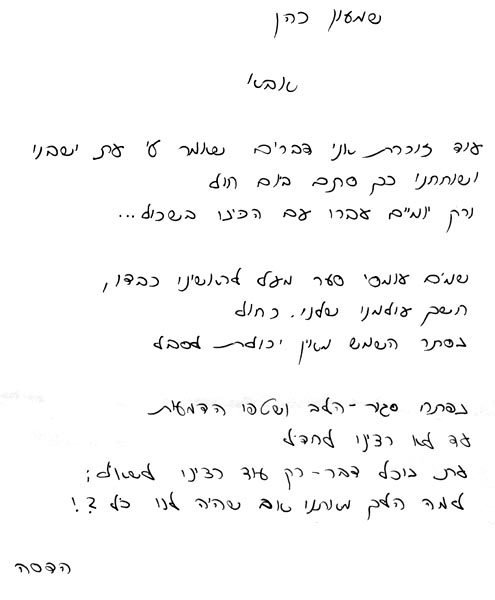 שמעון כהן
אבא
עוד זוכרת אני דברים שאמר לי עת ישבנו
ושוחחנו ככה סתם ביום חול
ורק יומיים עברו עם הכינו בשכול...
שמים עומסי סער מעל לראשינו כבדו,
חשך עולמנו שלנו. כחול
נסתר השמש מאין יכולת לסבל
נפתח סגור-הלב ושטפו הדמעות
עד לא רצינו לחדל
עת נוכל דבר-רק עוד רצינו לשאול;
למה הלך מאתנו אב שהיה לנו כל ?!
הדסה